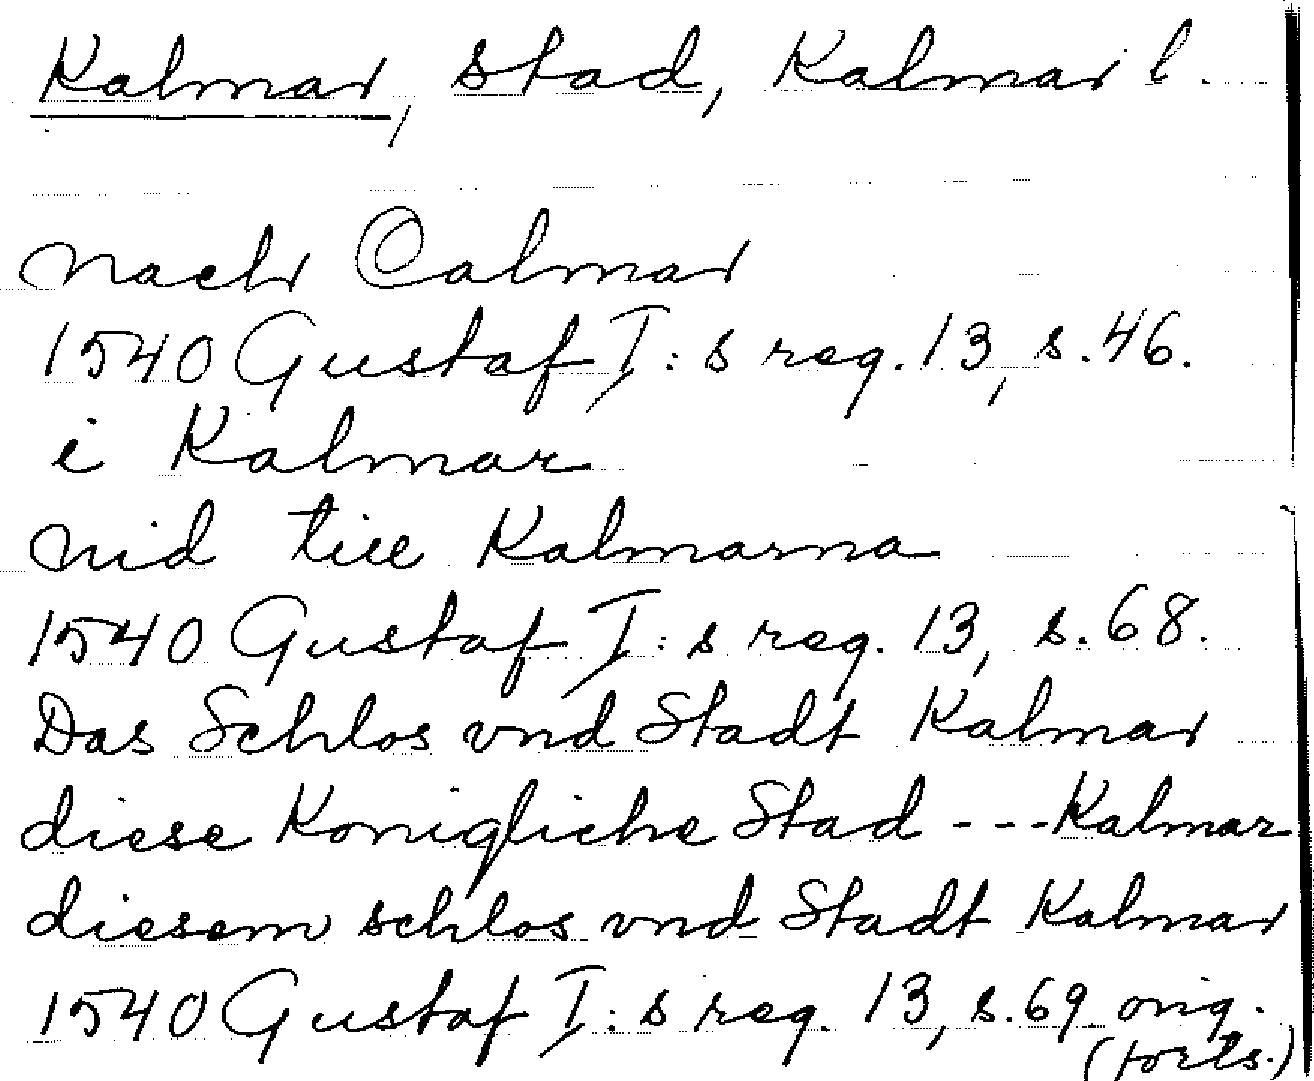 Kalmar, stad, Kalmar l.
nach Calmar
1540 Gustaf I:s reg. 13, s. 46.
i Kalmar
nid till Kalmarna
1540 Gustaf I:s reg. 13, s. 68.
Das Schlos vnd Stadt Kalmar
diese Konigliche Stad --- Kalmar
diesem schlos vnd Stadt Kalmar
1540 Gustaf I:s reg. 13, s. 69. orig.
(forts.)